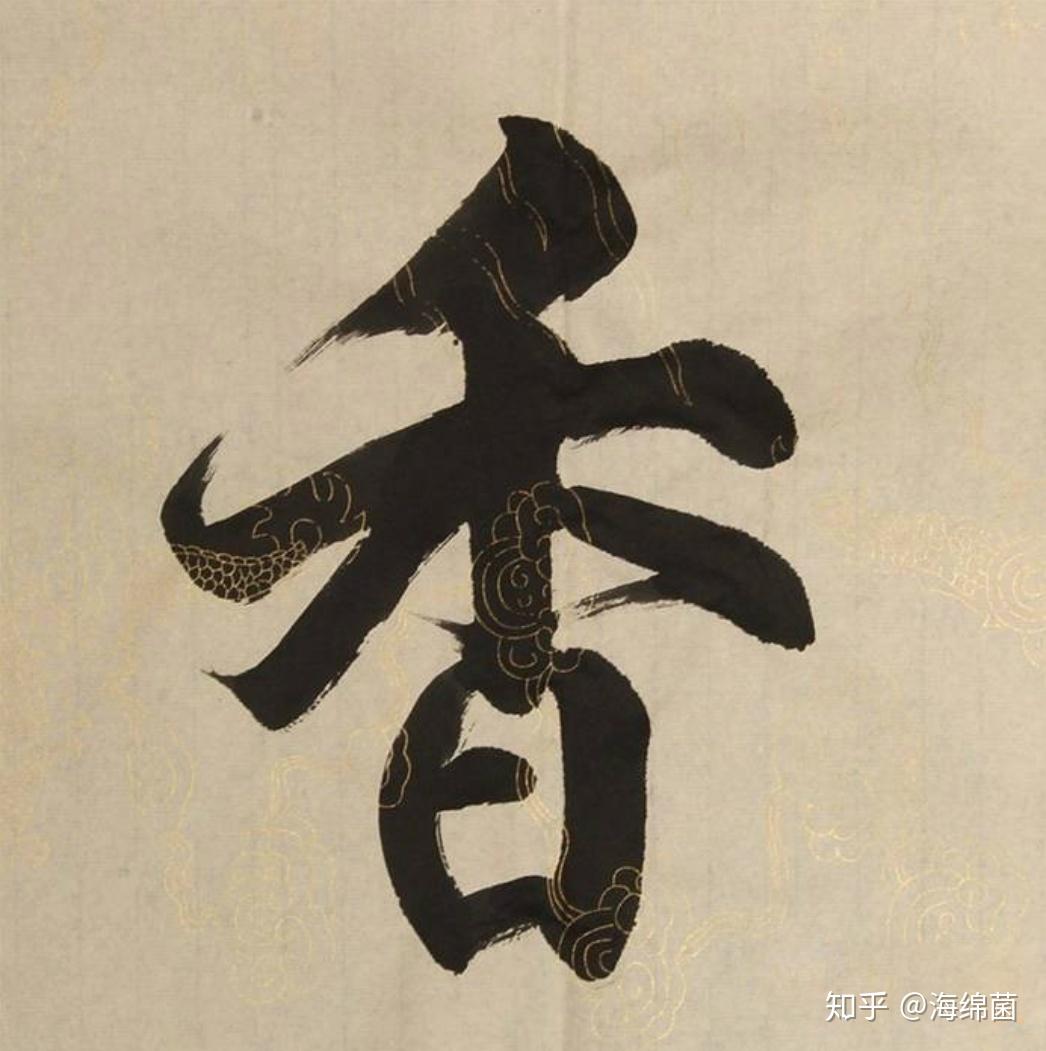 香
知乎 @海绵菌